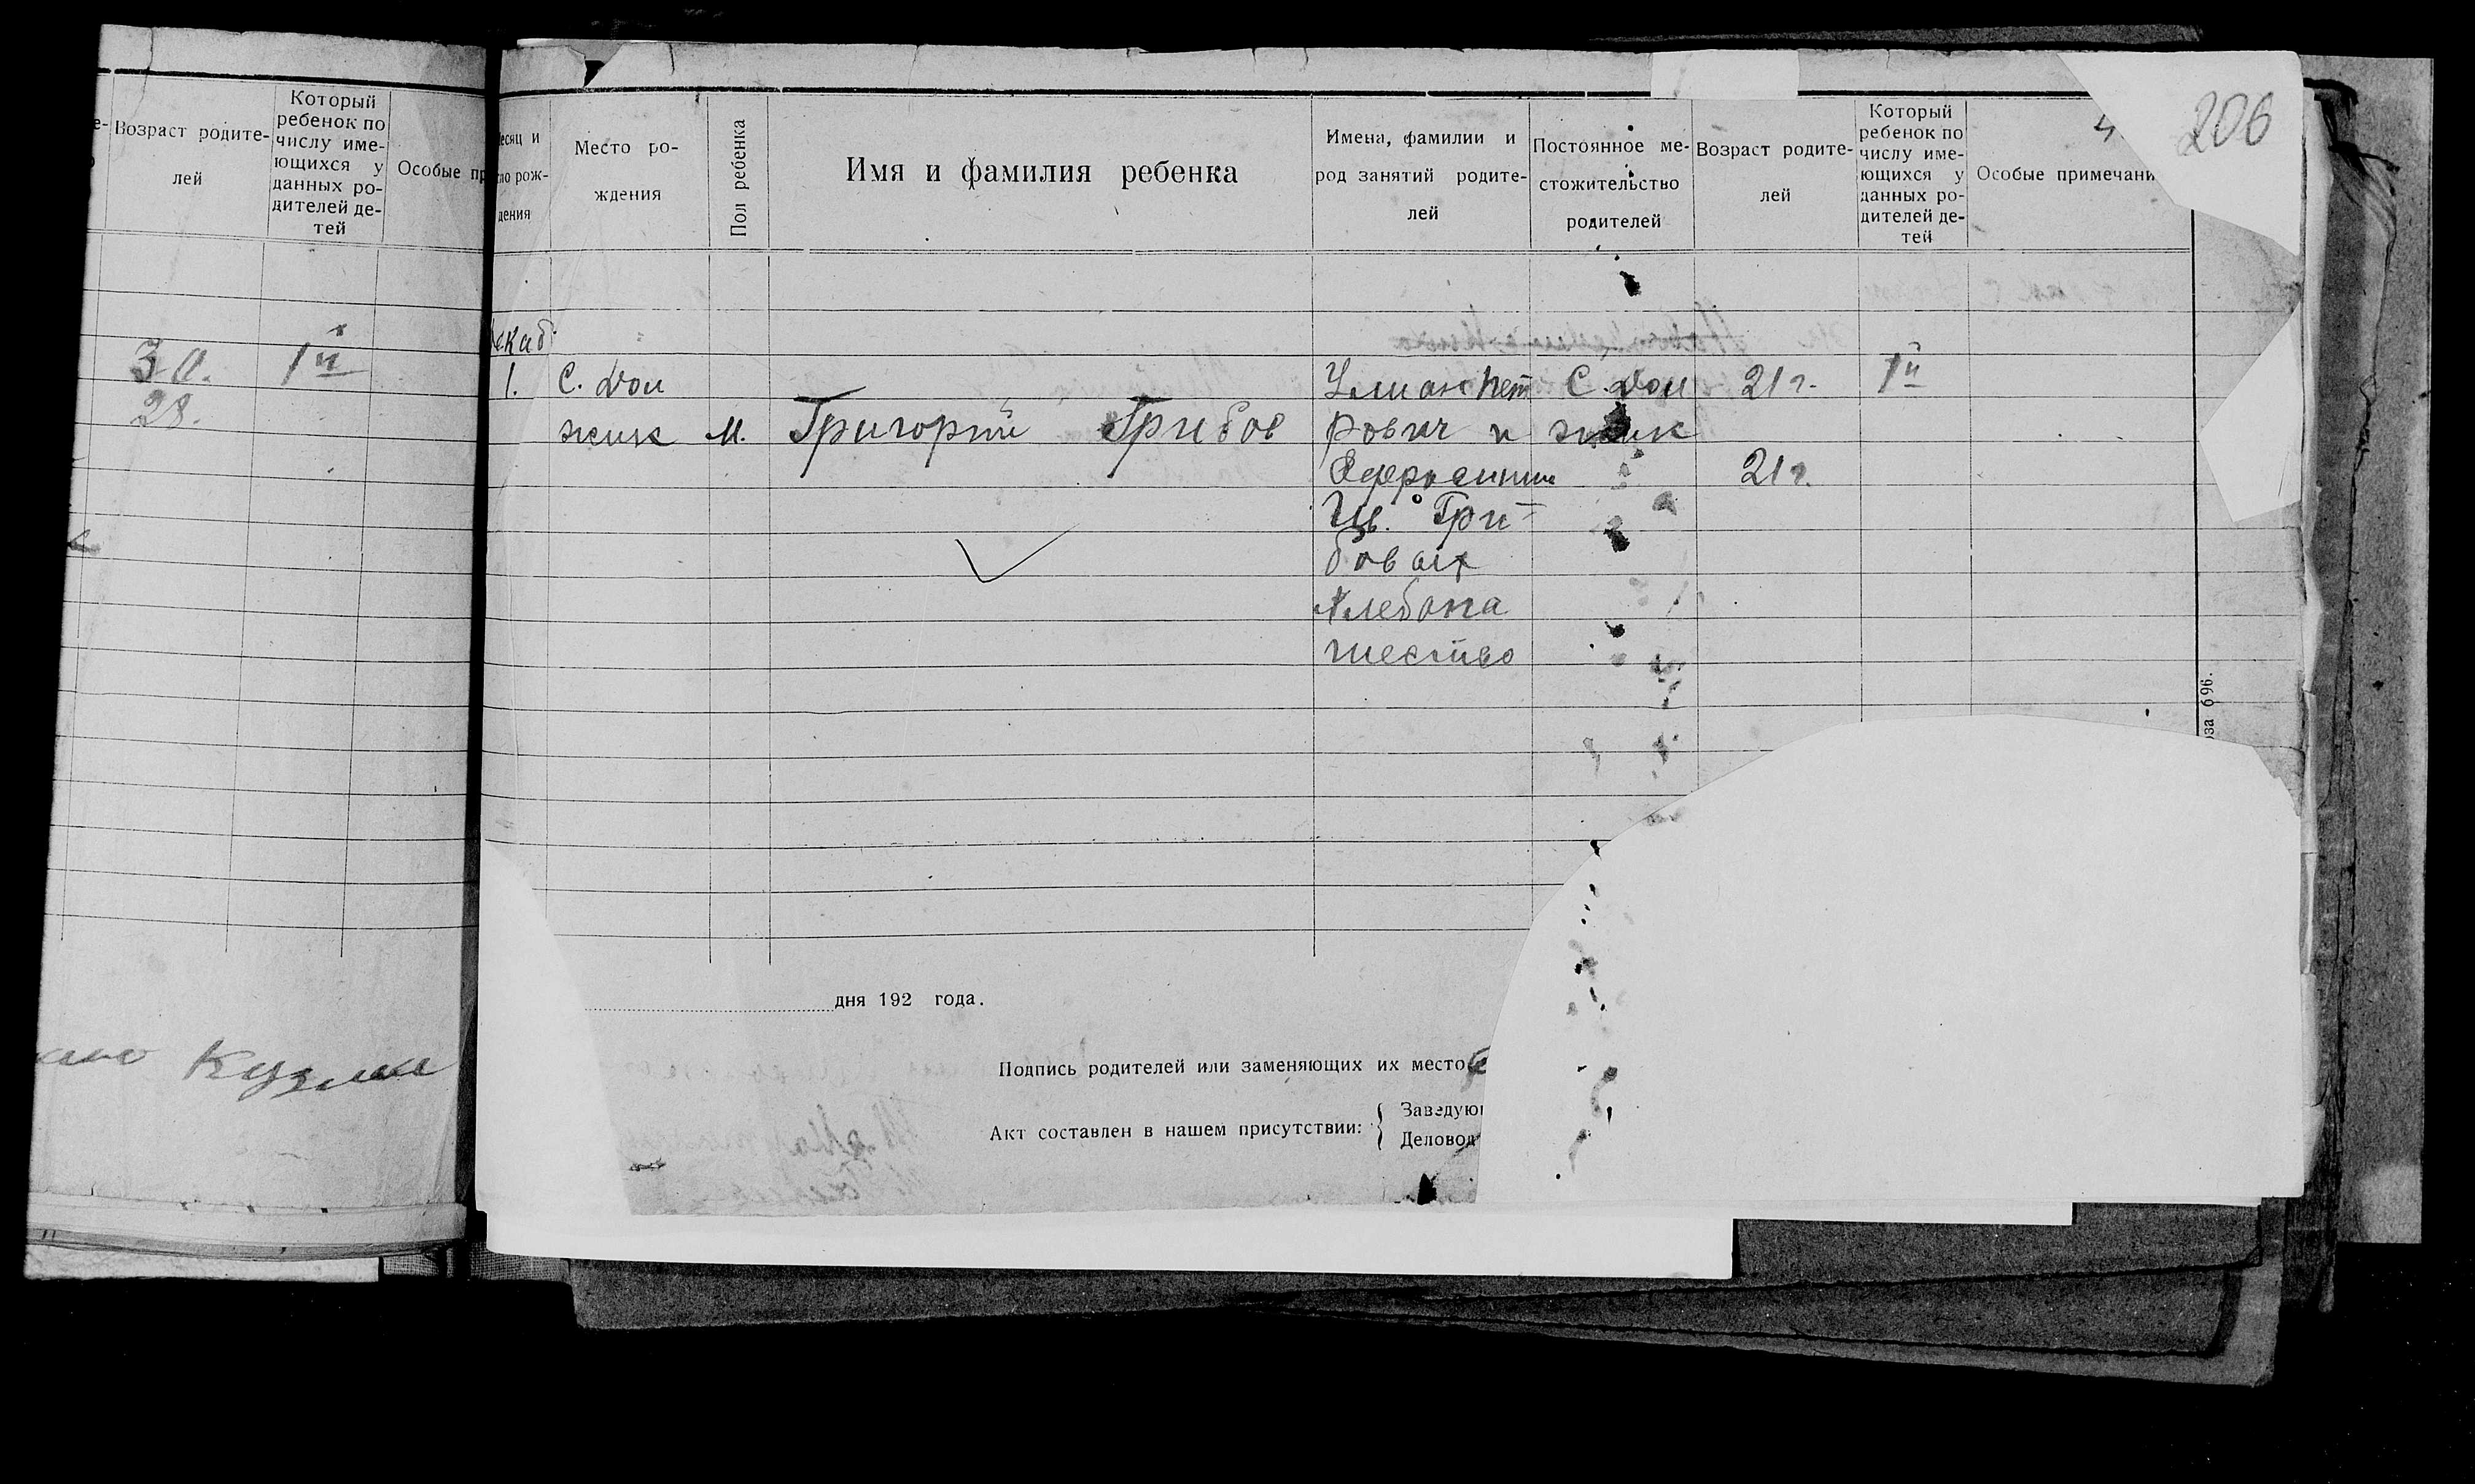 Возраст родите-
лей
Который
ребенок по
числу име-
ющихся у
данных ро-
дителей де-
тей
Особые
30. 1й
28.
Кузми
206
есяц и
ло рож-
дения
Место ро-
ждения
Пол ребенка
Имя и фамилия ребенка
Имена, фамилии и
род занятий родите-
лей
Постоянное ме-
стожительство
родителей
Возраст родите-
лей
Который
ребенок по
числу име-
ющихся у
данных ро-
дителей де-
тей
Особые примечани
екаб
1. С. Дол Улиан Пет С. Дол 21 г. 1й
жик М. Григорий Грибов рович и жик
Ефросиния 21 г.
Ив. Гри-
бовых
хлебопа
шество
за 696.
дня 192 года.
Подпись родителей или заменяющих их место
Акт составлен в нашем присутствии:
Заведую
Деловод